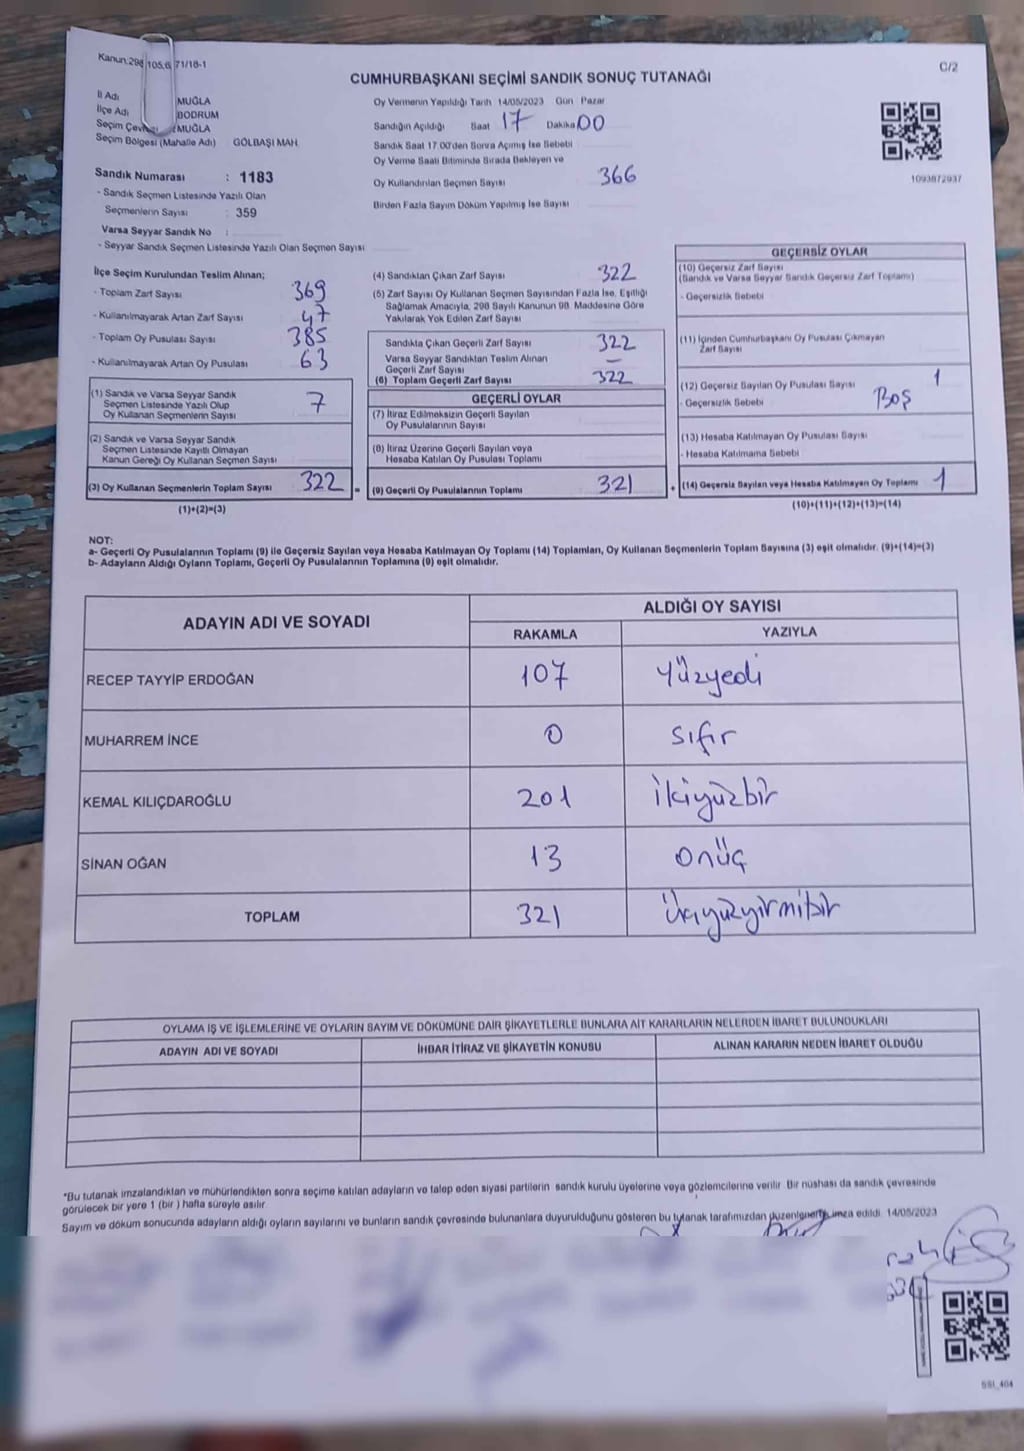 Kanun:298 105,6 71/16-1
C/2
CUMHURBAŞKANI SEÇİMİ SANDIK SONUÇ TUTANAĞI
İl Adı MUĞLA
İlçe Adı BODRUM
Seçim Çevresi : MUĞLA
Seçim Bölgesi (Mahalle Adı) GÖLBAŞI MAH.
Sandık Numarası : 1183
- Sandık Seçmen Listesinde Yazılı Olan
Seçmenlerin Sayısı : 359
Varsa Seyyar Sandık No :
- Seyyar Sandık Seçmen Listesinde Yazılı Olan Seçmen Sayısı
Oy Vermenin Yapıldığı Tarih 14/05/2023 Gün Pazar
Sandığın Açıldığı Saat 17 Dakika 00
Sandık Saat 17.00'den Sonra Açımış İse Sebebi
Oy Verme Saati Bitiminde Sırada Bekleyen ve
Oy Kullandırılan Seçmen Sayısı 366
Birden Fazla Sayım Döküm Yapılmış İse Sayısı
1093872937
İlçe Seçim Kurulundan Teslim Alınan;
- Toplam Zarf Sayısı 369
- Kullanılmayarak Artan Zarf Sayısı 47
- Toplam Oy Pusulası Sayısı 385
- Kullanılmayarak Artan Oy Pusulası 63
(1) Sandık ve Varsa Seyyar Sandık
Seçmen Listesinde Yazılı Olup
Oy Kullanan Seçmenlerin Sayısı 7
(2) Sandık ve Varsa Seyyar Sandık
Seçmen Listesinde Kayıtlı Olmayan
Kanun Gereği Oy Kullanan Seçmen Sayısı
(3) Oy Kullanan Seçmenlerin Toplam Sayısı 322
(1)+(2)=(3)
(4) Sandıktan Çıkan Zarf Sayısı 322
(5) Zarf Sayısı Oy Kullanan Seçmen Sayısından Fazla İse, Eşitliği
Sağlamak Amacıyla, 298 Sayılı Kanunun 98. Maddesine Göre
Yakılarak Yok Edilen Zarf Sayısı
Sandıkta Çıkan Geçerli Zarf Sayısı 322
Varsa Seyyar Sandıktan Teslim Alınan
Geçerli Zarf Sayısı —
(6) Toplam Geçerli Zarf Sayısı 322
GEÇERLİ OYLAR
(7) İtiraz Edilmeksizin Geçerli Sayılan
Oy Pusulalarının Sayısı
(8) İtiraz Üzerine Geçerli Sayılan veya
Hesaba Katılan Oy Pusulası Toplamı
= (9) Geçerli Oy Pusulalarının Toplamı 321
GEÇERSİZ OYLAR
(10) Geçersiz Zarf Sayısı
(Sandık ve Varsa Seyyar Sandık Geçersiz Zarf Toplamı)
- Geçersizlik Sebebi
(11) İçinden Cumhurbaşkanı Oy Pusulası Çıkmayan
Zarf Sayısı
(12) Geçersiz Sayılan Oy Pusulası Sayısı 1
- Geçersizlik Sebebi Boş
(13) Hesaba Katılmayan Oy Pusulası Sayısı
- Hesaba Katılmama Sebebi
+ (14) Geçersiz Sayılan veya Hesaba Katılmayan Oy Toplamı 1
(10)+(11)+(12)+(13)=(14)
NOT:
a- Geçerli Oy Pusulalarının Toplamı (9) ile Geçersiz Sayılan veya Hesaba Katılmayan Oy Toplamı (14) Toplamları, Oy Kullanan Seçmenlerin Toplam Sayısına (3) eşit olmalıdır. (9)+(14)=(3)
b- Adayların Aldığı Oyların Toplamı, Geçerli Oy Pusulalarının Toplamına (9) eşit olmalıdır.
ADAYIN ADI VE SOYADI
ALDIĞI OY SAYISI
RAKAMLA YAZIYLA
RECEP TAYYİP ERDOĞAN 107 yüzyedi
MUHARREM İNCE 0 sıfır
KEMAL KILIÇDAROĞLU 201 ikiyüzbir
SİNAN OĞAN 13 onüç
TOPLAM 321 üçyüzyirmibir
OYLAMA İŞ VE İŞLEMLERİNE VE OYLARIN SAYIM VE DÖKÜMÜNE DAİR ŞİKAYETLERLE BUNLARA AİT KARARLARIN NELERDEN İBARET BULUNDUKLARI
ADAYIN ADI VE SOYADI İHBAR İTİRAZ VE ŞİKAYETİN KONUSU ALINAN KARARIN NEDEN İBARET OLDUĞU
*Bu tutanak imzalandıktan ve mühürlendikten sonra seçime katılan adayların ve talep eden siyasi partilerin sandık kurulu üyelerine veya gözlemcilerine verilir. Bir nüshası da sandık çevresinde
görülecek bir yere 1 (bir ) hafta süreyle asılır
Sayım ve döküm sonucunda adayların aldığı oyların sayılarını ve bunların sandık çevresinde bulunanlara duyurulduğunu gösteren bu tutanak tarafımızdan düzenlenerek imza edildi. 14/05/2023
SSI_404